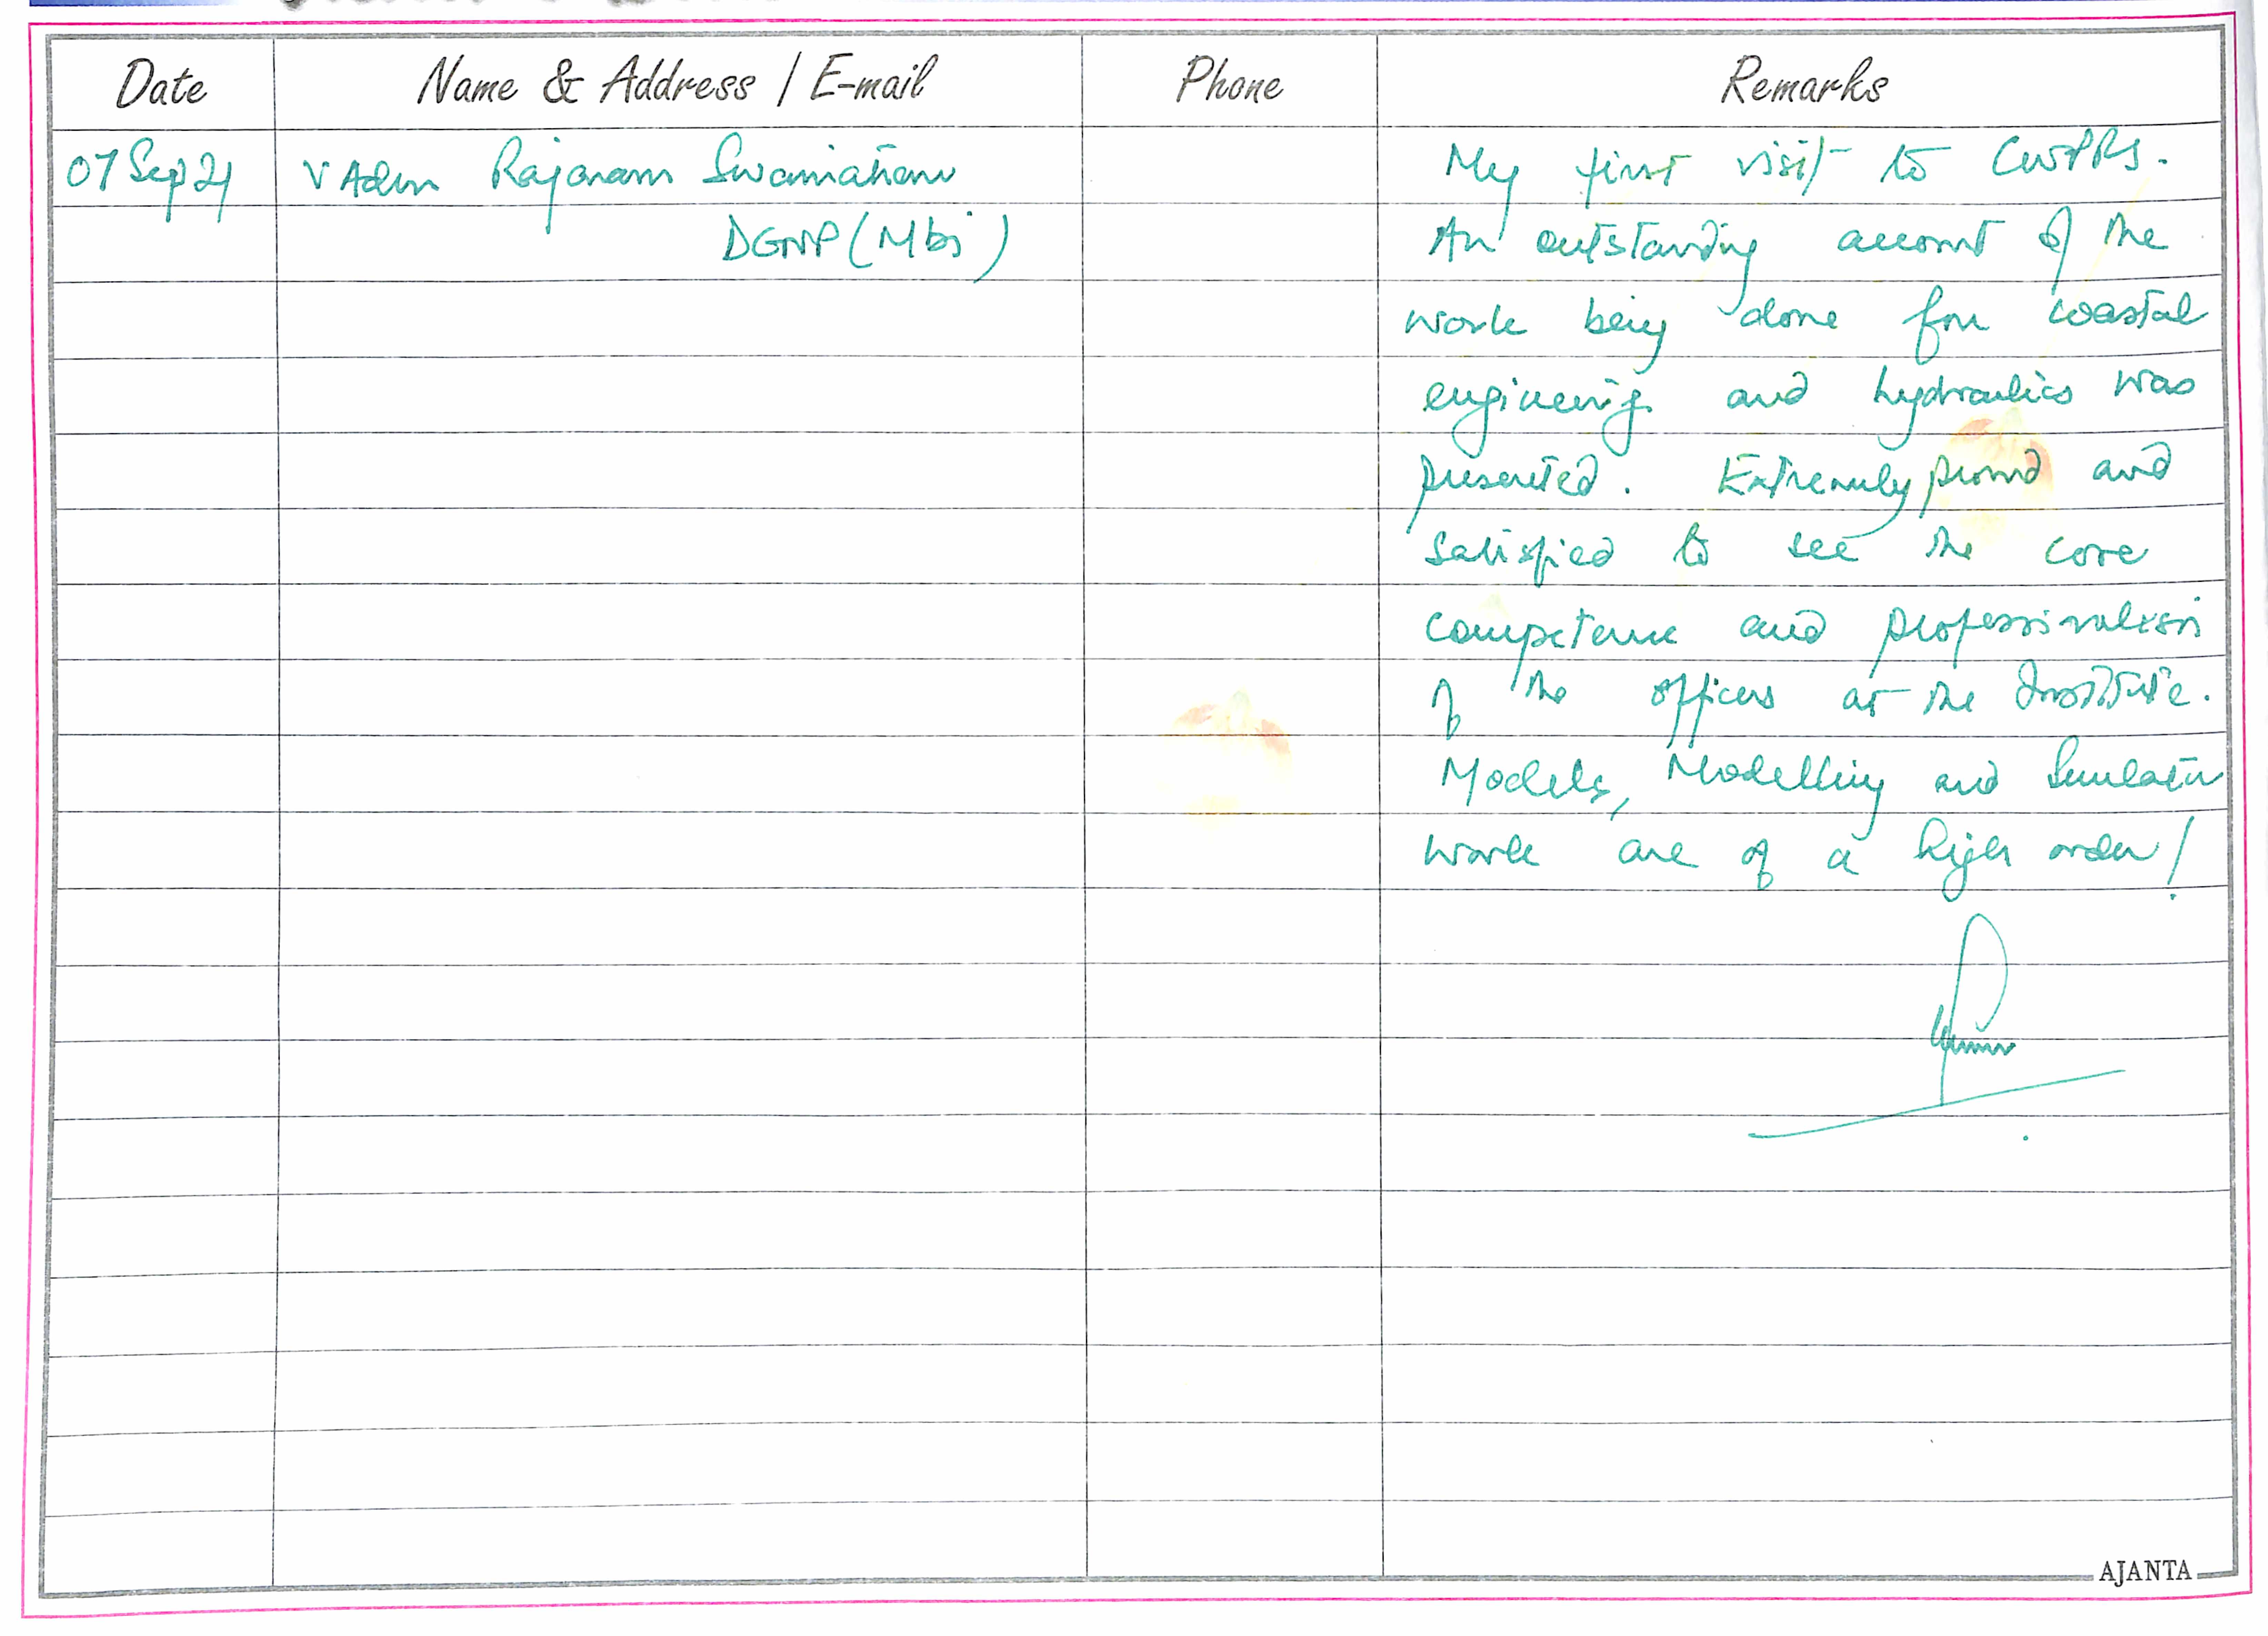 Date Name & Address / E-mail Phone Remarks
07 Sep 21 V Adm Rajaram Swaminathan My first visit to CWPRS.
DGNP (Mbi) An outstanding account of the
work being done for coastal
engineering and hydraulics was
presented. Extremely proud and
satisfied to see the core
competence and professionalism
of the officers at the Institute.
Models, Modelling and Simulation
work are of a high order!
AJANTA